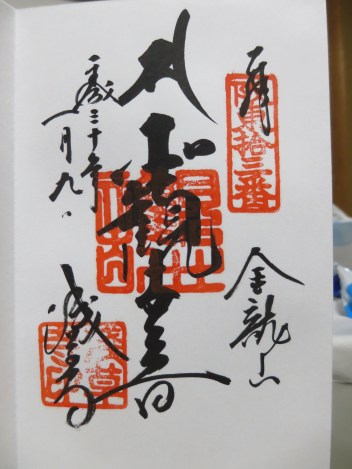 奉拝
坂東拾三番
金龍山
聖観世音
平成三十年一月九日
浅草寺